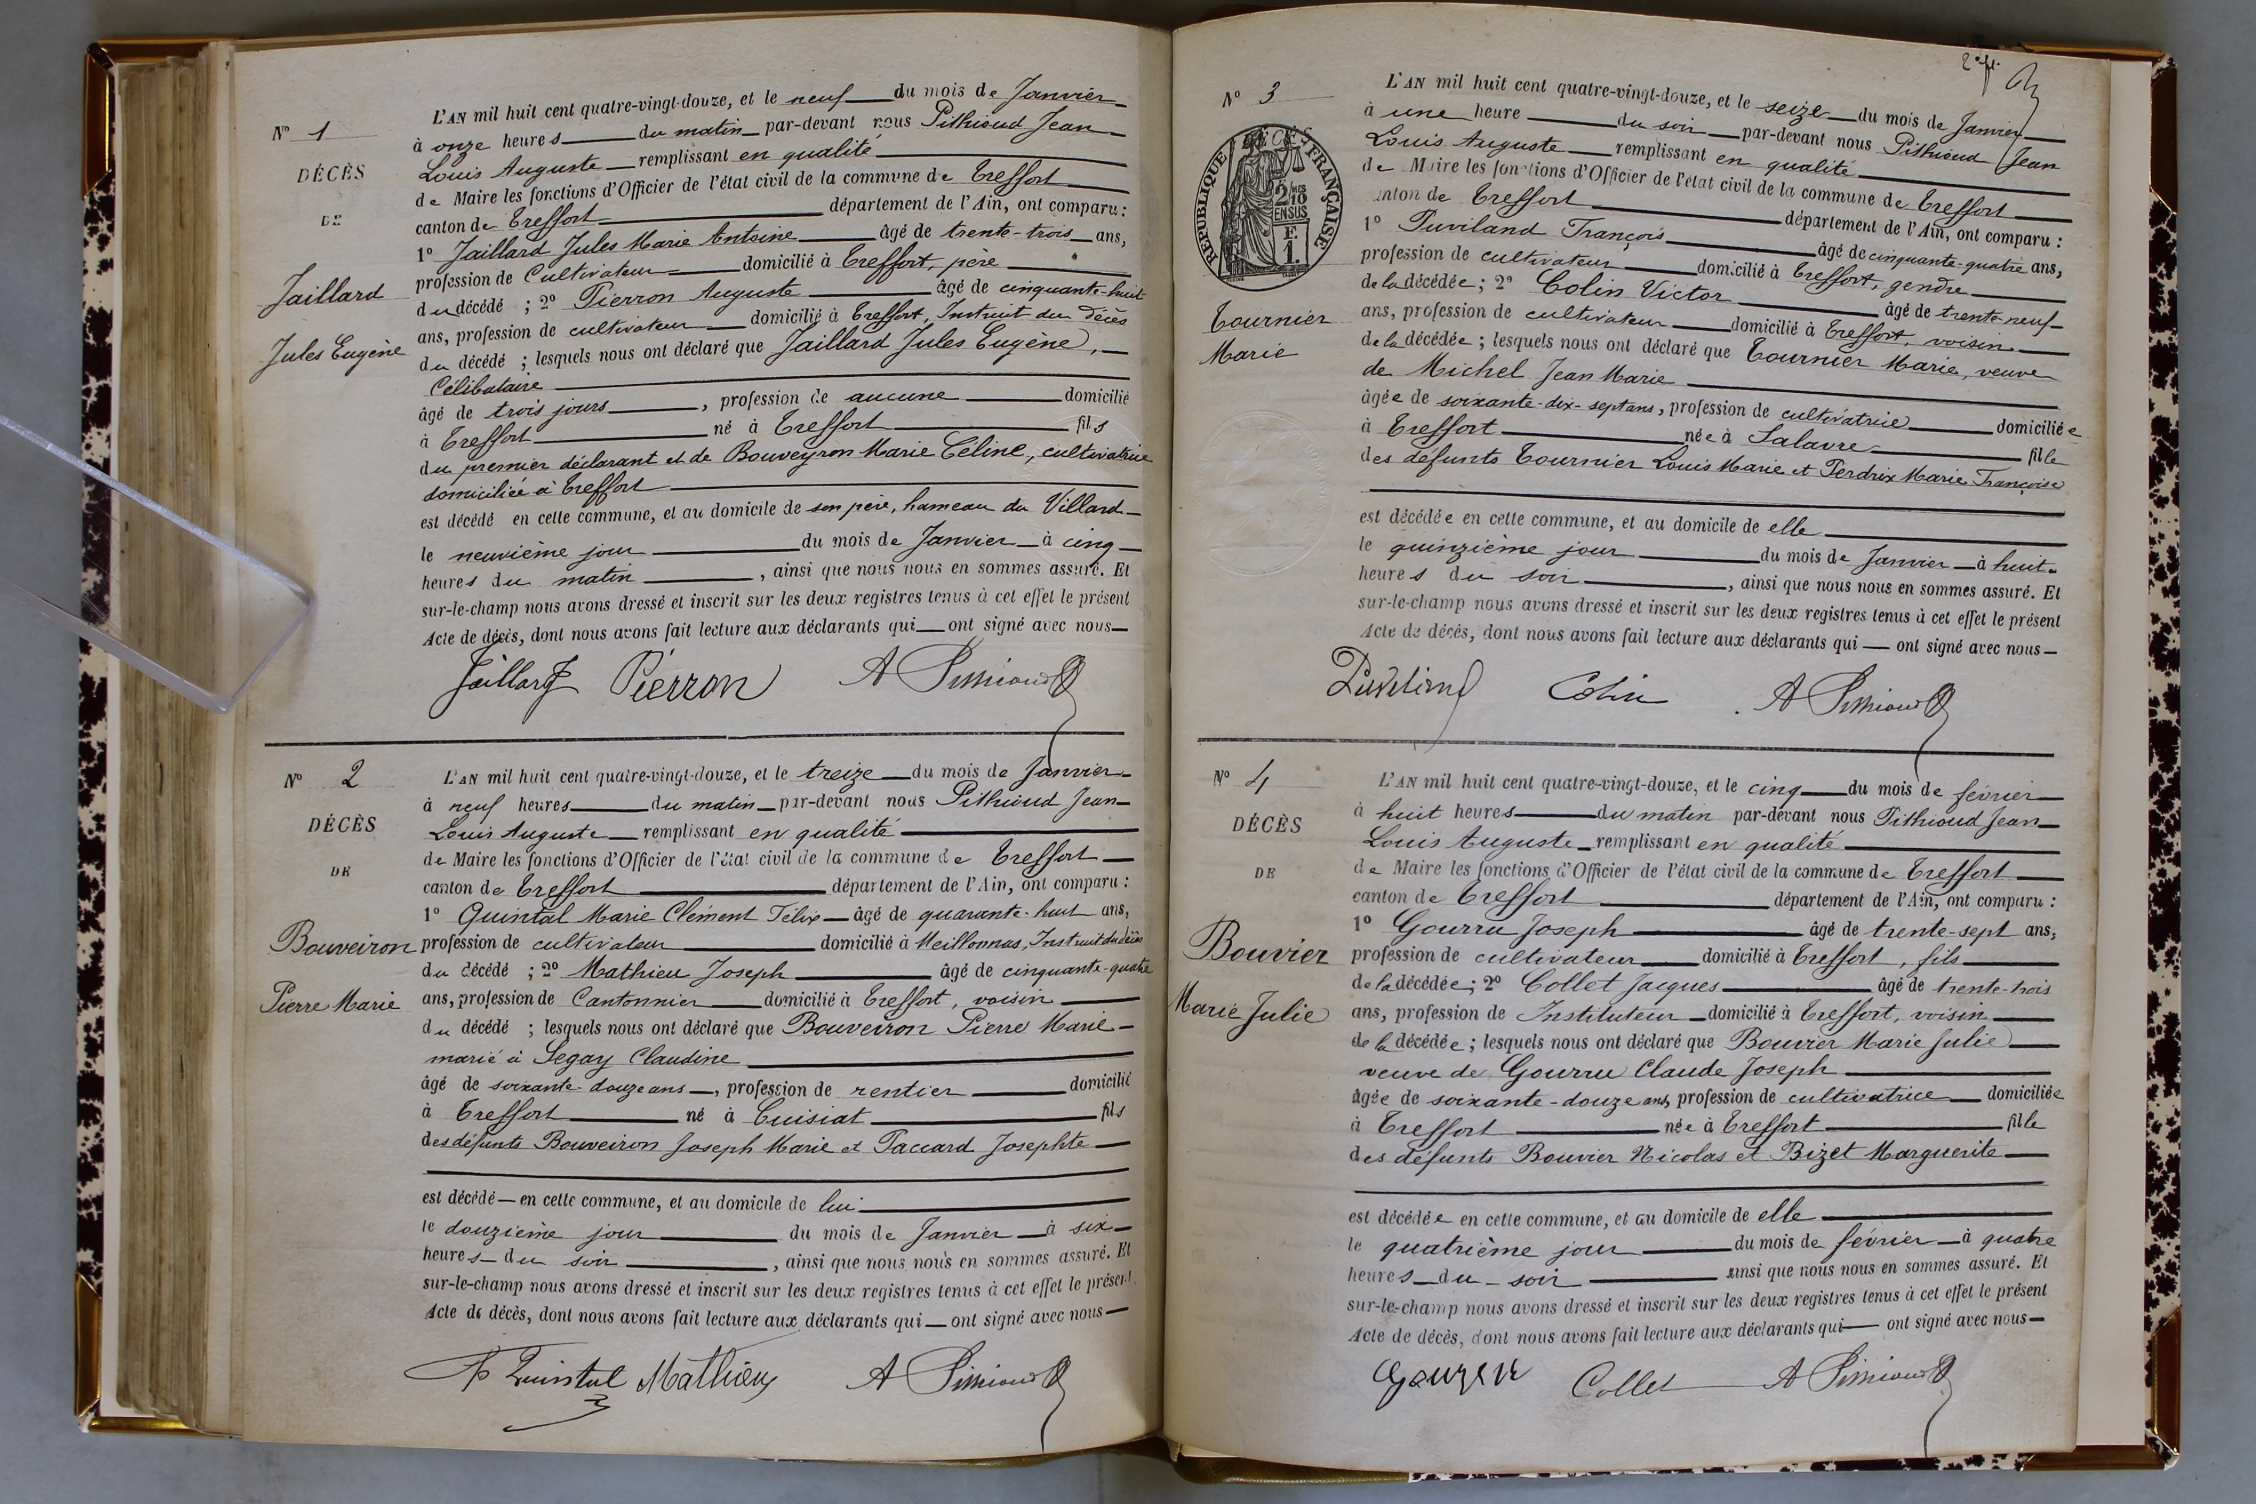 N° 1
DÉCÈS
DE
Jaillard
Jules Eugène
L'AN mil huit cent quatre-vingt-douze, et le neuf du mois de Janvier
à onze heures du matin par-devant nous Pithioud Jean
Louis Auguste remplissant en qualité
de Maire les fonctions d'Officier de l'état civil de la commune de Treffort
canton de Treffort département de l'Ain, ont comparu :
1° Jaillard Jules Marie Antoine âgé de trente-trois ans,
profession de Cultivateur domicilié à Treffort, père
du décédé ; 2° Pierron Auguste âgé de cinquante-huit
ans, profession de cultivateur domicilié à Treffort, Instruit du décès
du décédé ; lesquels nous ont déclaré que Jaillard Jules Eugène,
Célibataire
âgé de trois jours, profession de aucune domicilié
à Treffort né à Treffort fils
du premier déclarant et de Bouveyron Marie Céline, cultivatrice
domiciliée à Treffort
est décédé en cette commune, et au domicile de son père, hameau du Villard
le neuvième jour du mois de Janvier à cinq
heures du matin, ainsi que nous nous en sommes assuré. Et
sur-le-champ nous avons dressé et inscrit sur les deux registres tenus à cet effet le présent
Acte de décès, dont nous avons fait lecture aux déclarants qui ont signé avec nous
Jaillard Pierron A Pithioud
N° 2
DÉCÈS
DE
Bouveiron
Pierre Marie
L'AN mil huit cent quatre-vingt-douze, et le treize du mois de Janvier
à neuf heures du matin par-devant nous Pithioud Jean
Louis Auguste remplissant en qualité
de Maire les fonctions d'Officier de l'état civil de la commune de Treffort
canton de Treffort département de l'Ain, ont comparu :
1° Quintal Marie Clément Félix âgé de quarante-huit ans,
profession de cultivateur domicilié à Meillonnas, Instruit du décès
du décédé ; 2° Mathieu Joseph âgé de cinquante-quatre
ans, profession de Cantonnier domicilié à Treffort, voisin
du décédé ; lesquels nous ont déclaré que Bouveiron Pierre Marie
marié à Segay Claudine
âgé de soixante-douze ans, profession de rentier domicilié
à Treffort né à Cuisiat fils
des défunts Bouveiron Joseph Marie et Paccard Josephte
est décédé en cette commune, et au domicile de lui
le douzième jour du mois de Janvier à six
heures du soir, ainsi que nous nous en sommes assuré. Et
sur-le-champ nous avons dressé et inscrit sur les deux registres tenus à cet effet le présent
Acte de décès, dont nous avons fait lecture aux déclarants qui ont signé avec nous
Quintal Mathieu A Pithioud
N° 3
RÉPUBLIQUE FRANÇAISE
2/10
EN SUS
F.
1.
Tournier
Marie
L'AN mil huit cent quatre-vingt-douze, et le seize du mois de Janvier
à une heure du soir par-devant nous Pithioud Jean
Louis Auguste remplissant en qualité
de Maire les fonctions d'Officier de l'état civil de la commune de Treffort
canton de Treffort département de l'Ain, ont comparu :
1° Puviland François âgé de cinquante-quatre ans,
profession de cultivateur domicilié à Treffort, gendre
de la décédée ; 2° Colin Victor âgé de trente-neuf
ans, profession de cultivateur domicilié à Treffort, voisin
de la décédée ; lesquels nous ont déclaré que Tournier Marie, veuve
de Michel Jean Marie
âgée de soixante-dix-sept ans, profession de cultivatrice domiciliée
à Treffort née à Salavre fille
des défunts Tournier Louis Marie et Perdrix Marie Françoise
est décédée en cette commune, et au domicile de elle
le quinzième jour du mois de Janvier à huit
heures du soir, ainsi que nous nous en sommes assuré. Et
sur-le-champ nous avons dressé et inscrit sur les deux registres tenus à cet effet le présent
Acte de décès, dont nous avons fait lecture aux déclarants qui ont signé avec nous
Puviland Colin A Pithioud
N° 4
DÉCÈS
DE
Bouvier
Marie Julie
L'AN mil huit cent quatre-vingt-douze, et le cinq du mois de février
à huit heures du matin par-devant nous Pithioud Jean
Louis Auguste remplissant en qualité
de Maire les fonctions d'Officier de l'état civil de la commune de Treffort
canton de Treffort département de l'Ain, ont comparu :
1° Gourru Joseph âgé de trente-sept ans,
profession de cultivateur domicilié à Treffort, fils
de la décédée ; 2° Collet Jacques âgé de trente-trois
ans, profession de Instituteur domicilié à Treffort, voisin
de la décédée ; lesquels nous ont déclaré que Bouvier Marie Julie
veuve de Gourru Claude Joseph
âgée de soixante-douze ans, profession de cultivatrice domiciliée
à Treffort née à Treffort fille
des défunts Bouvier Nicolas et Bizet Marguerite
est décédée en cette commune, et au domicile de elle
le quatrième jour du mois de février à quatre
heures du soir ainsi que nous nous en sommes assuré. Et
sur-le-champ nous avons dressé et inscrit sur les deux registres tenus à cet effet le présent
Acte de décès, dont nous avons fait lecture aux déclarants qui ont signé avec nous
Collet A Pithioud